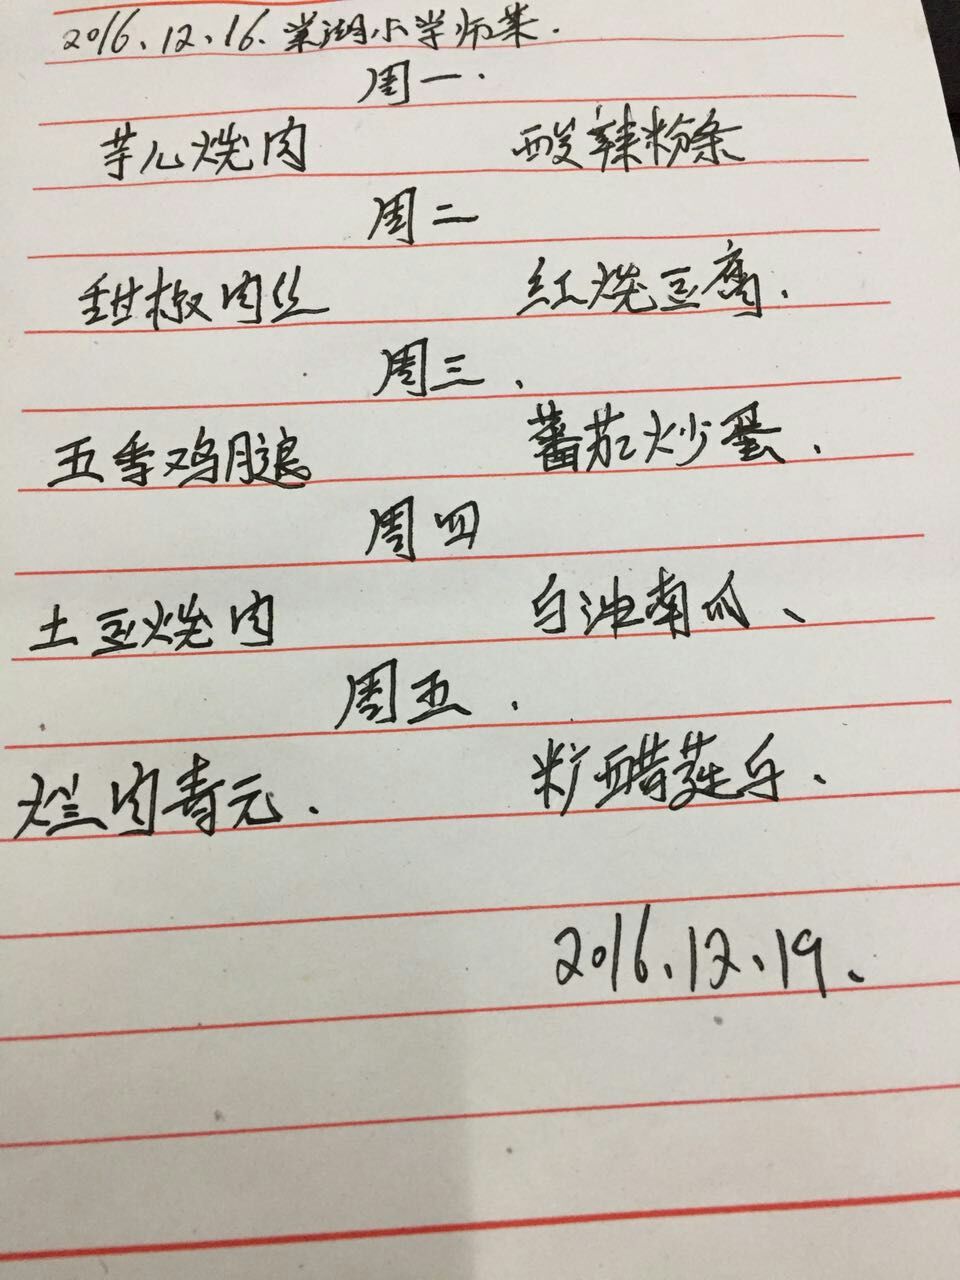 2016、12、16、棠湖小学师菜.
周一.
芋儿烧肉 酸辣粉条
周二
甜椒肉丝 红烧豆腐.
周三、
五香鸡腿 蕃茄炒蛋、
周四
土豆烧肉 白油南瓜、
周五.
烂肉青元. 糖醋莲白、
2016、12、19、